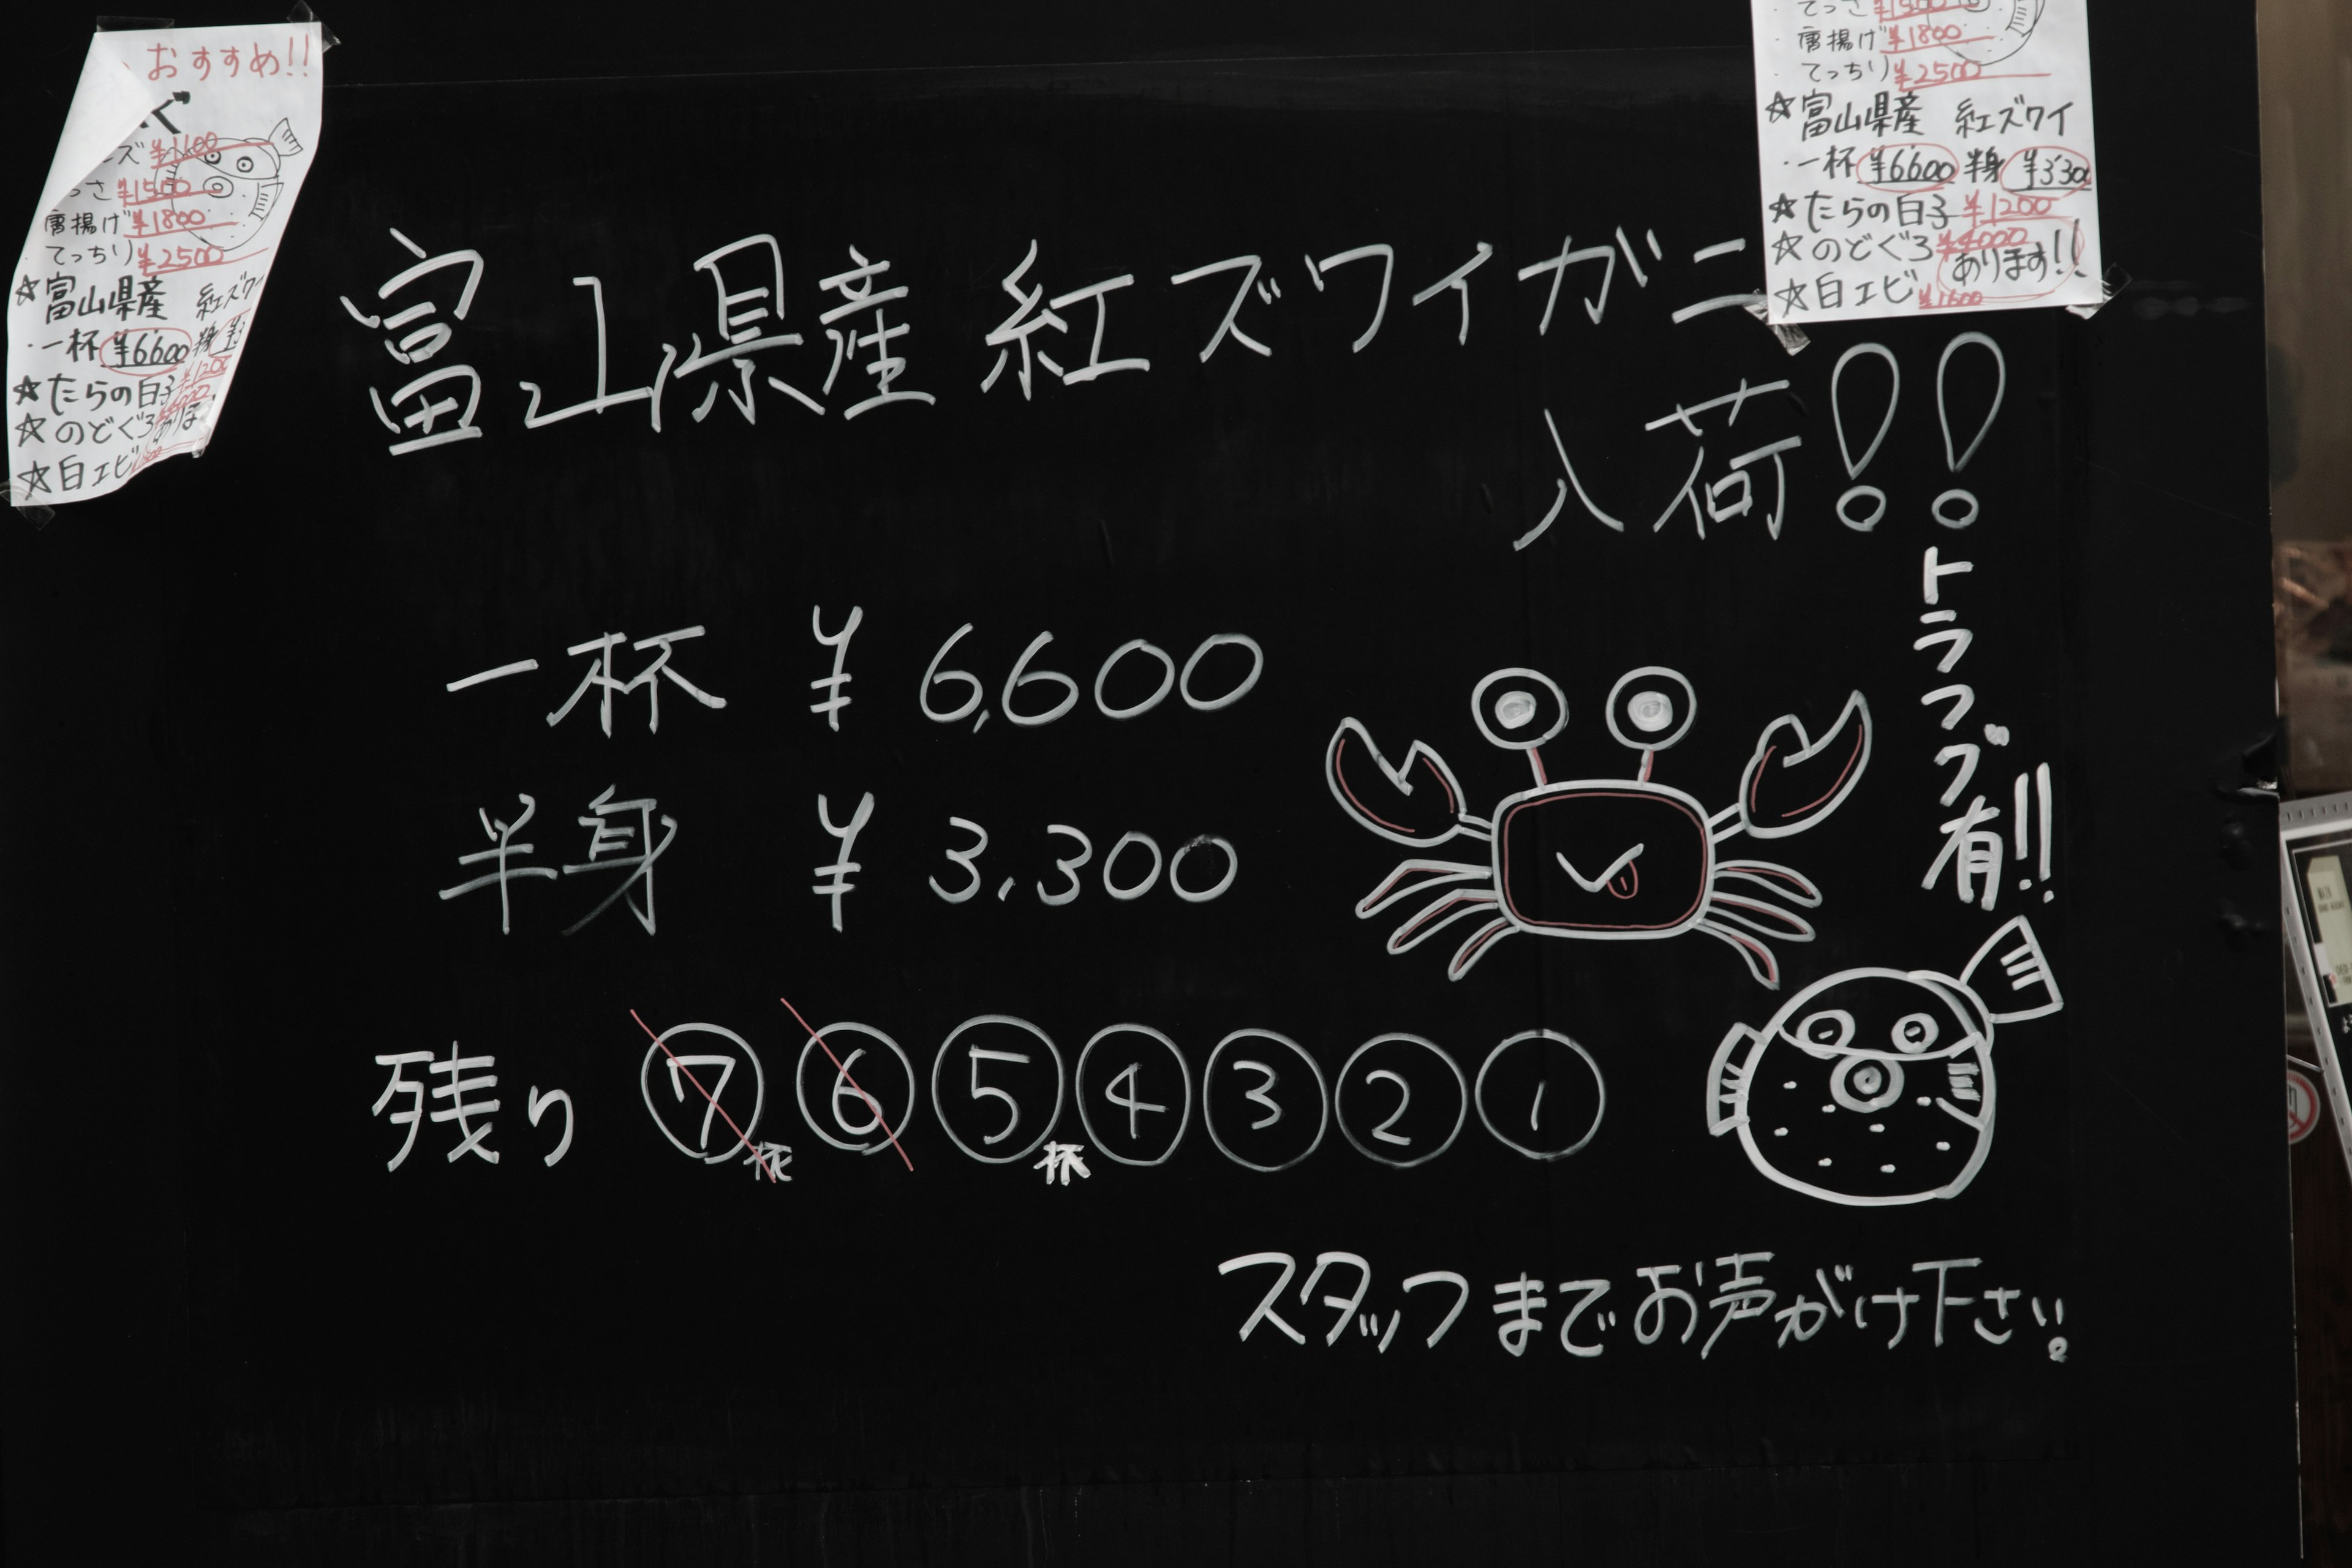 おすすめ!!
ぐ
ズ ¥1100
っさ ¥1500
唐揚げ ¥1800
てっちり ¥2500
☆富山県産 紅ズワイ
・一杯 ¥6600 半身
★たらの白子 ¥1200
☆のどぐろ
☆白エビ
・てっさ ¥1500
・唐揚げ ¥1800
・てっちり ¥2500
☆富山県産 紅ズワイ
・一杯 ¥6600 半身 ¥3300
★たらの白子 ¥1200
☆のどぐろ ¥4000
☆白エビ ¥1600
あります!!
富山県産 紅ズワイガニ
入荷!!
一杯 ¥6,600
半身 ¥3,300
残り ⑦杯 ⑥ ⑤杯 ④ ③ ② ①
トラフグ有!!
スタッフまでお声がけ下さい。